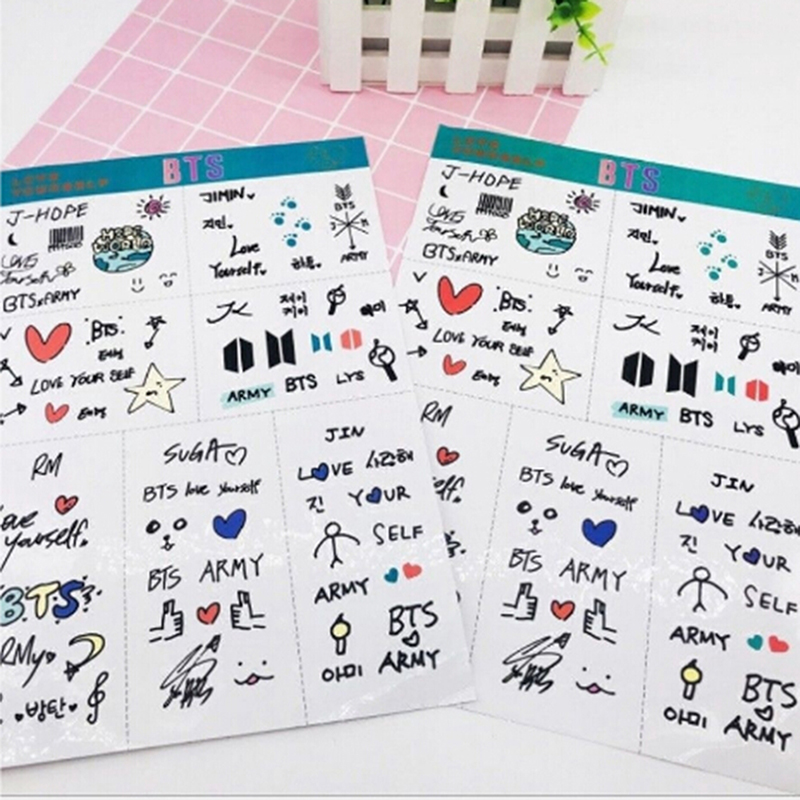 LOVE YOURSELF
BTS
J-HOPE
LOVE
Yourself
HOPE
WORLD
BTS×ARMY
JIMIN
지민.
Love
Yourself.
하트.
BTS
J M
ARMY
BTS.
LOVE YOUR SELF
JK
제이
케이
ARMY
BTS
LYS
RM
ove
yourself.
BTS
RMy
방탄
SUGA
BTS love yourself
BTS ARMY
JIN
LOVE 사랑해
진 YOUR
SELF
ARMY
BTS
아미 ARMY
LOVE YOURSELF
BTS
J-HOPE
LOVE
Yourself
HOPE
WORLD
BTS×ARMY
JIMIN
지민.
Love
Yourself.
하트.
BTS
J M
ARMY
BTS.
LOVE YOUR SELF
JK
제이
케이
ARMY
BTS
LYS
RM
SUGA
BTS love yourself
BTS ARMY
JIN
LOVE 사랑해
진 YOUR
SELF
ARMY
BTS
아미 ARMY